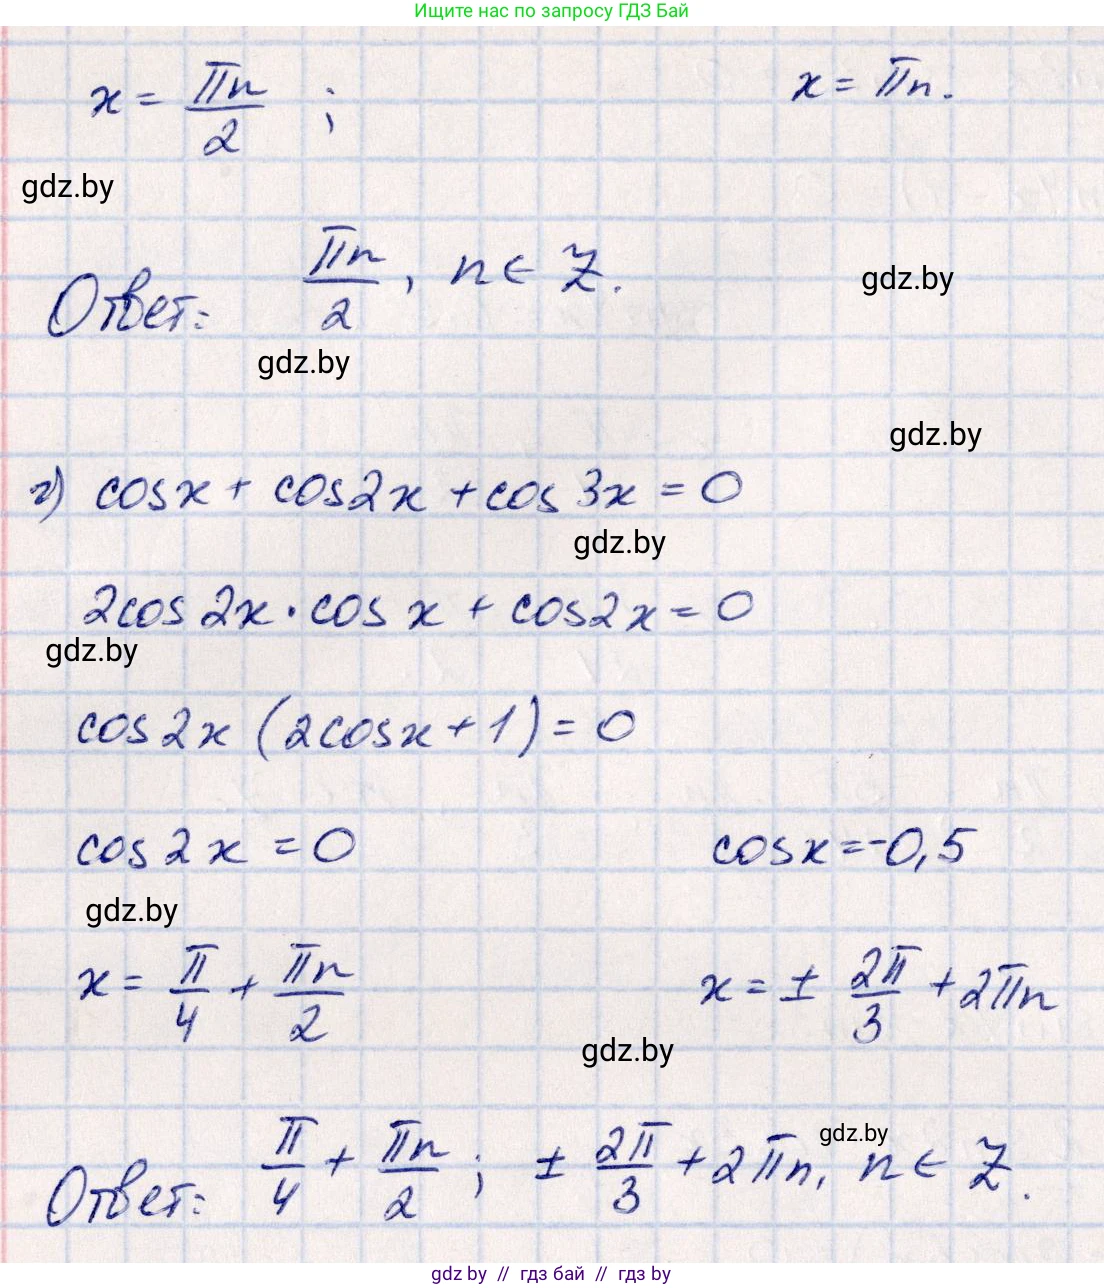 Ищите нас по запросу ГДЗ Бай
x = πn/2 ; x = πn.
gdz.by
Ответ: πn/2, n ∈ Z.
gdz.by
gdz.by
gdz.by
г) cosx + cos2x + cos3x = 0
gdz.by
2cos2x·cosx + cos2x = 0
gdz.by
cos2x (2cosx + 1) = 0
cos2x = 0 cosx = -0,5
gdz.by
x = π/4 + πn/2 x = ± 2π/3 + 2πn
gdz.by
gdz.by
Ответ: π/4 + πn/2 ; ± 2π/3 + 2πn, n ∈ Z.
gdz.by // гдз бай // гдз by